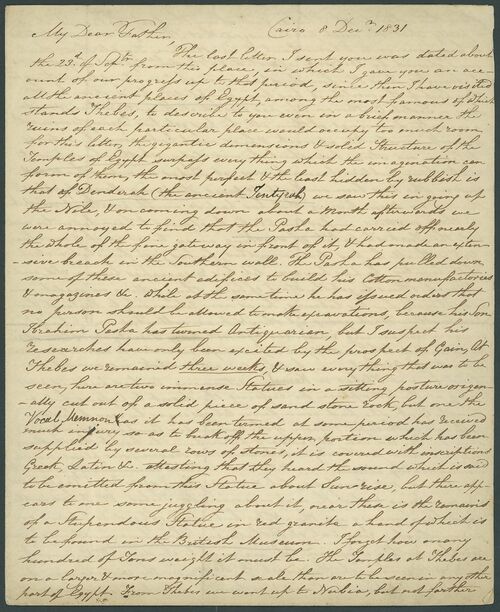 My Dear Father, Cairo 8 Decr. 1831
The last letter I sent you was dated about
the 23d. of Septr. from this place, in which I gave you an acc
ount of our progress up to that period, since then I have visited
all the ancient places of Egypt, among the most famous of which
stands Thebes, to describe to you even in a brief manner the
ruins of each particular place would occupy too much room
for this letter, the gigantic dimensions & solid Structure of the
Temples of Egypt surpass everything which the imagination can
form of them, the most perfect & the least hidden by rubbish is
that of Denderah (the ancient Tentyrah) we saw this in going up
the Nile, & on coming down about a Month afterwards we
were annoyed to find that the Pasha had carried off nearly
the whole of the fine gateway in front of it, & had made an exten
sive breach in the Southern wall. The Pasha has pulled down
some of these ancient edifices to build his Cotton manufactories
& magazines &c. While at the same time he has issued orders that
no person should be allowed to make excavations, because his Son
Ibrahim Pasha has turned Antiquarian but I suspect his
researches have only been excited by the prospect of Gain, At
Thebes we remained three weeks, & saw everything that was to be
seen, here are two immense Statues in a sitting posture origin
-ally cut out of a solid piece of sand stone rock, but one the
Vocal Memnon as it has been termed at some period has received
much injury so as to break off the upper portion which has been
supplied by several rows of stones, it is covered with inscriptions
Greek, Latin &c. attesting that they heard the sound which is said
to be emitted from this Statue about Sun rise, but there app-
ears to me some juggling about it, near these is the remains
of a Stupendous Statue in red granite a hand of which is
to be found in the British Museum. I forget how many
hundred of Tons weight it must be. The Temples at Thebes are
on a larger & more magnificent scale than are to be seen in any other
part of Egypt. From Thebes we went up to Nubia, but not farther